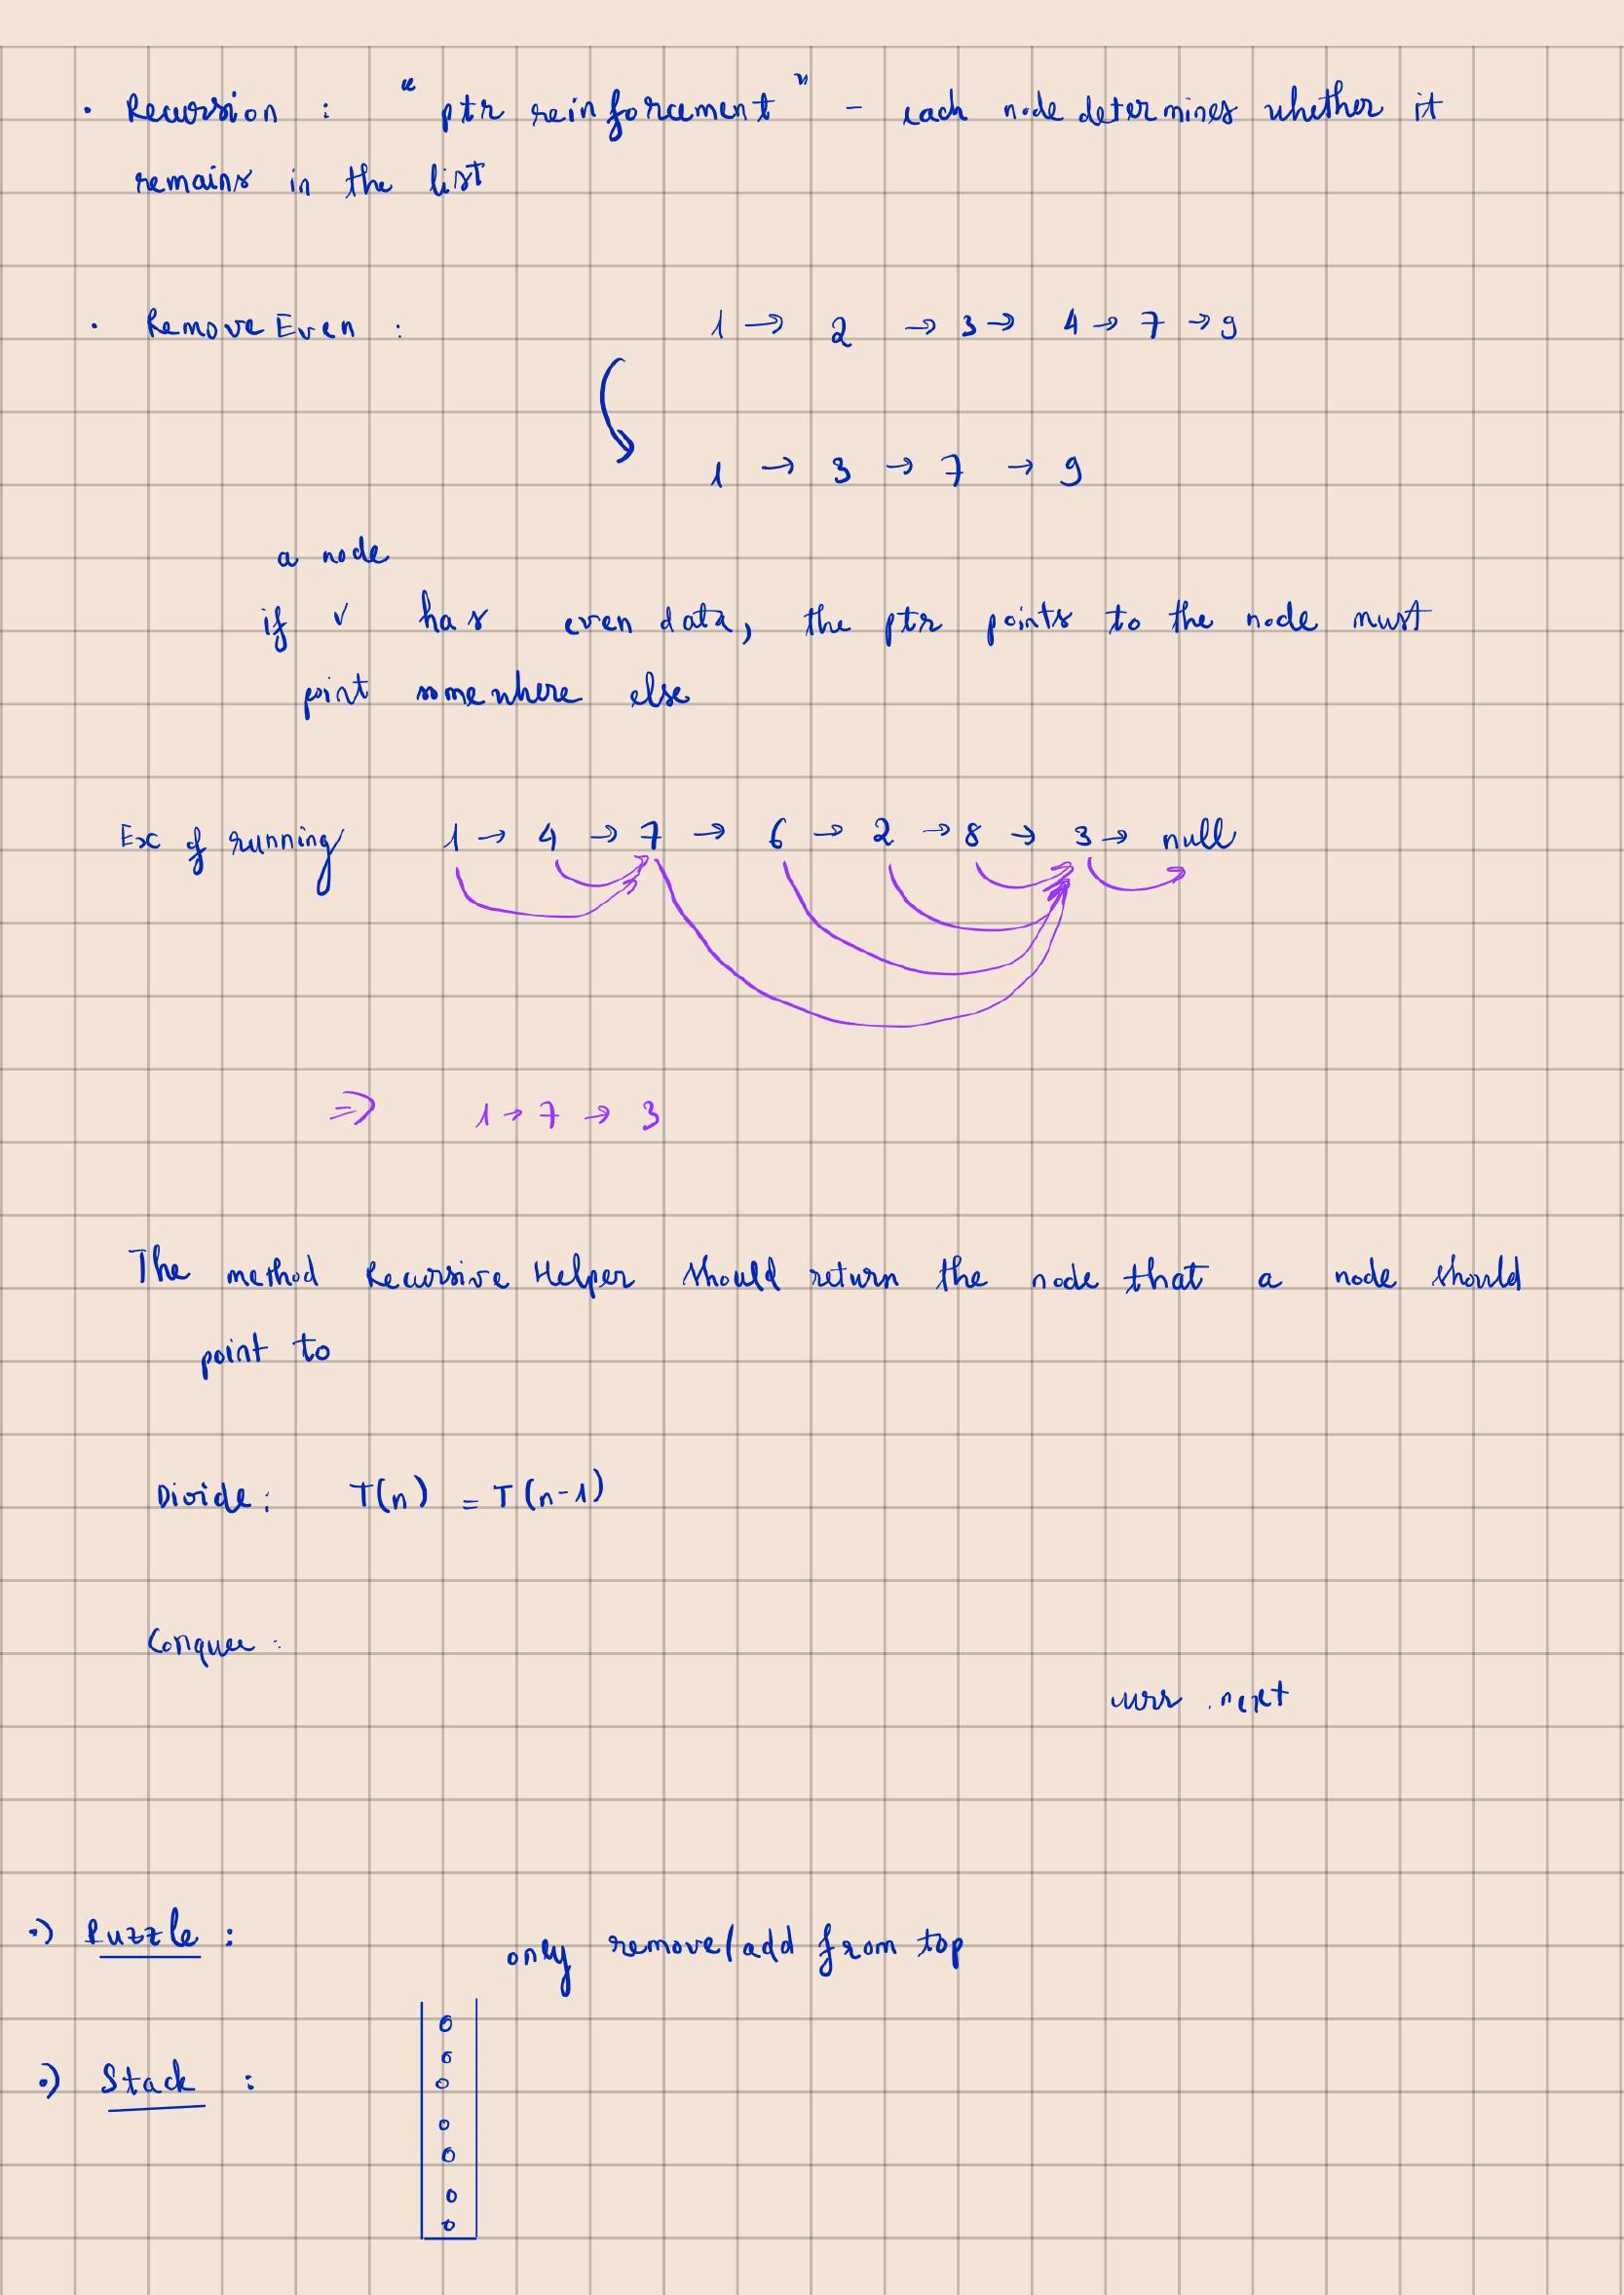 · Recursion : " ptr reinforcement " - each node determines whether it
remains in the list
· Remove Even : 1 → 2 → 3 → 4 → 7 → 9
1 → 3 → 7 → 9
a node
if ✓ has even data, the ptr points to the node must
point somewhere else
Exc of running 1 → 4 → 7 → 6 → 2 → 8 → 3 → null
⇒ 1 → 7 → 3
The method Recursive Helper should return the node that a node should
point to
Divide : T(n) = T(n-1)
Conquer :
curr .next
·) Puzzle : only remove/add from top
·) Stack :